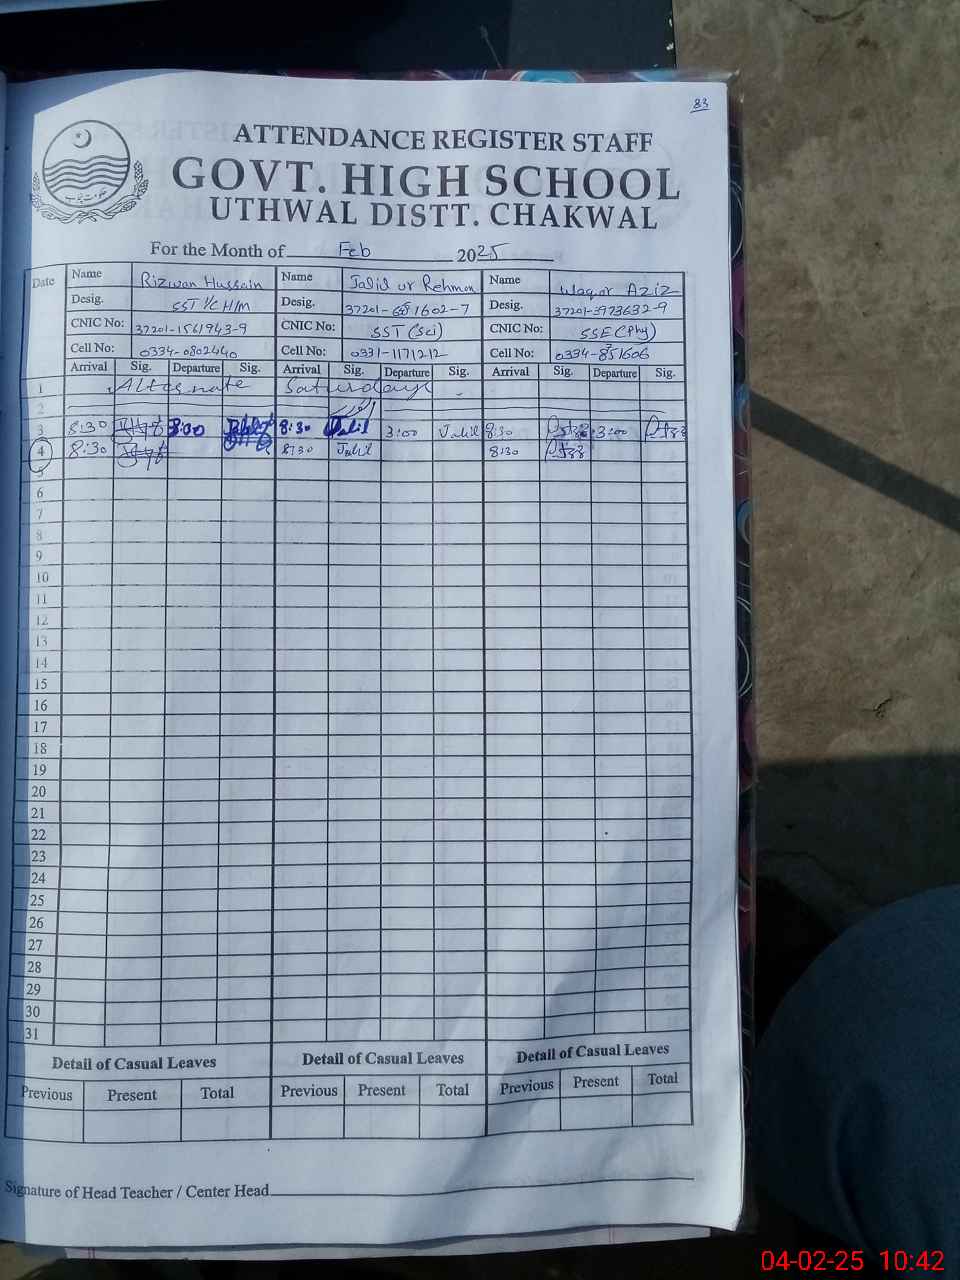 83
ATTENDANCE REGISTER STAFF
GOVT. HIGH SCHOOL
UTHWAL DISTT. CHAKWAL
For the Month of Feb 2025
Date Name Rizwan Hussain Name Jalil ur Rehman Name Waqar Aziz
Desig. SST I/C H/M Desig. 37201-681602-7 Desig. 37201-3973632-9
CNIC No: 37201-1561943-9 CNIC No: SST (Sci) CNIC No: SSE (Phy)
Cell No: 0334-0802440 Cell No: 0331-1171212 Cell No: 0334-8751606
Arrival Sig. Departure Sig. Arrival Sig. Departure Sig. Arrival Sig. Departure Sig.
1 Alternate Saturday
2
3 8:30 3:00 8:30 Jalil 3:00 Jalil 8:30 3:00
4 8:30 8:30 Jalil 8:30
5
6
7
8
9
10
11
12
13
14
15
16
17
18
19
20
21
22
23
24
25
26
27
28
29
30
31
Detail of Casual Leaves Detail of Casual Leaves Detail of Casual Leaves
Previous Present Total Previous Present Total Previous Present Total
Signature of Head Teacher / Center Head
04-02-25 10:42